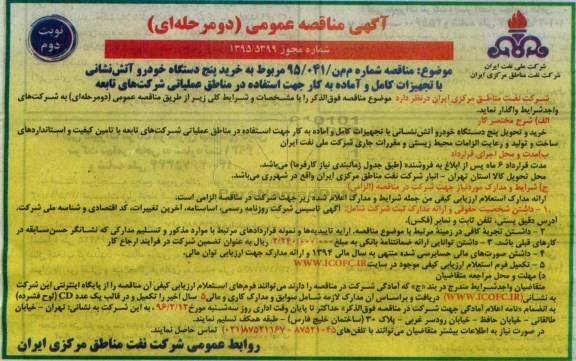 آگهی مناقصه عمومی (دومرحله‌ای)
نوبت دوم
شماره مجوز ۱۳۹۵/۵۳۹۹
شرکت ملی نفت ایران
شرکت نفت مناطق مرکزی ایران
موضوع: مناقصه شماره م‌م‌ن/۹۵/۰۴۱ مربوط به خرید پنج دستگاه خودرو آتش‌نشانی
با تجهیزات کامل و آماده به کار جهت استفاده در مناطق عملیاتی شرکت‌های تابعه
شرکت نفت مناطق مرکزی ایران درنظر دارد موضوع مناقصه فوق‌الذکر را با مشخصات و شرایط کلی زیر از طریق مناقصه عمومی (دومرحله‌ای) به شرکت‌های
واجدشرایط واگذار نماید.
الف) شرح مختصر کار
خرید و تحویل پنج دستگاه خودرو آتش‌نشانی با تجهیزات کامل و آماده به کار جهت استفاده در مناطق عملیاتی شرکت‌های تابعه با تامین کیفیت و استانداردهای
ساخت و تولید و رعایت الزامات محیط زیستی و مقررات جاری شرکت ملی نفت ایران
ب)مدت و محل اجرای قرارداد
مدت قرارداد ۶ ماه پس از ابلاغ به فروشنده (طبق جدول زمانبندی نیاز کارفرما) می‌باشد.
محل تحویل کالا استان تهران - انبار شرکت نفت مناطق مرکزی ایران واقع در شهرری می‌باشد.
ج) شرایط و مدارک موردنیاز جهت شرکت در مناقصه (الزامی)
ارائه مدارک استعلام ارزیابی کیفی من جمله شرایط و مدارک اعلام شده زیر جهت شرکت در مناقصه الزامی است:
۱- داشتن شخصیت حقوقی و ارائه مدارک ثبت شرکت شامل: آگهی تاسیس شرکت روزنامه رسمی، اساسنامه، آخرین تغییرات، کد اقتصادی و شناسه ملی شرکت.
آدرس دقیق پستی، تلفن ثابت و نمابر (فکس).
۲- داشتن تجربه کافی در زمینه مرتبط با موضوع مناقصه. ارایه تاییدیه‌ها و نمونه قراردادهای مرتبط با موارد مذکور و تسلیم مدارکی که نشانگر حسن‌سابقه در
کارهای قبلی باشد. ۳- داشتن توانایی ارائه ضمانتنامۀ بانکی به مبلغ ۲/۲۴۰/۰۰۷/۰۰۰ ریال به عنوان تضمین شرکت در فرایند ارجاع کار
۴- داشتن صورت‌های مالی حسابرسی شده منتهی به سال مالی ۱۳۹۴ و ارائه مدارک جهت ارزیابی توان مالی.
۵- تکمیل فرم استعلام ارزیابی کیفی موجود در سایت WWW.ICOFC.IR
د) مهلت و محل مراجعه متقاضیان
متقاضیان واجدشرایط مندرج در بند «ج» که آمادگی شرکت در مناقصه را دارند می‌توانند فرم‌های استعلام ارزیابی کیفی آن مناقصه را از پایگاه اینترنتی این شرکت
به نشانی (WWW.ICOFC.IR) دریافت و براساس آن مدارک لازمه شامل سوابق و مدارک کاری و مالی ۵ سال اخیر را تکمیل و در قالب یک عدد CD (لوح فشرده)
به انضمام نامه اعلام آمادگی جهت شرکت در مناقصه فوق‌الذکر، حداکثر تا پایان وقت اداری روز سه‌شنبه مورخ ۹۶/۲/۱۲ به این شرکت به نشانی: تهران - خیابان
طالقانی - خیابان حافظ - خیابان رودسر غربی - پلاک ۳۰ (ساختمان خلیج فارس) - طبقه همکف تسلیم نمایند.
در صورت نیاز به اطلاعات بیشتر متقاضیان می‌توانند با تلفن‌های ۸۷۵۲۱۰۴۵ - ۸۷۵۲۱۱۶۷(۰۲۱) تماس حاصل نمایند.
روابط عمومی شرکت نفت مناطق مرکزی ایران